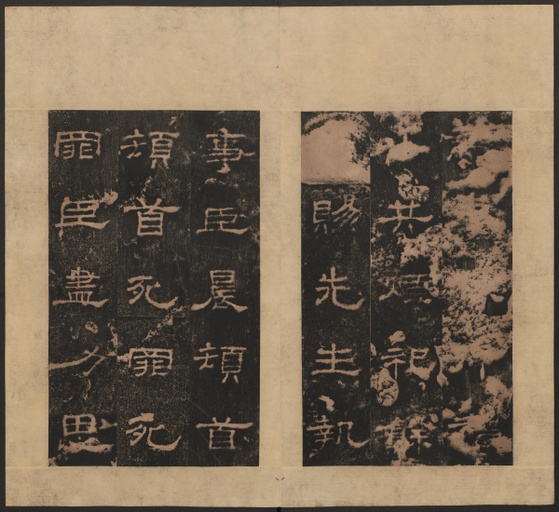 共煙祀餘
賜先生執
事臣晨頓首
頓首死罪死
罪臣盡力思